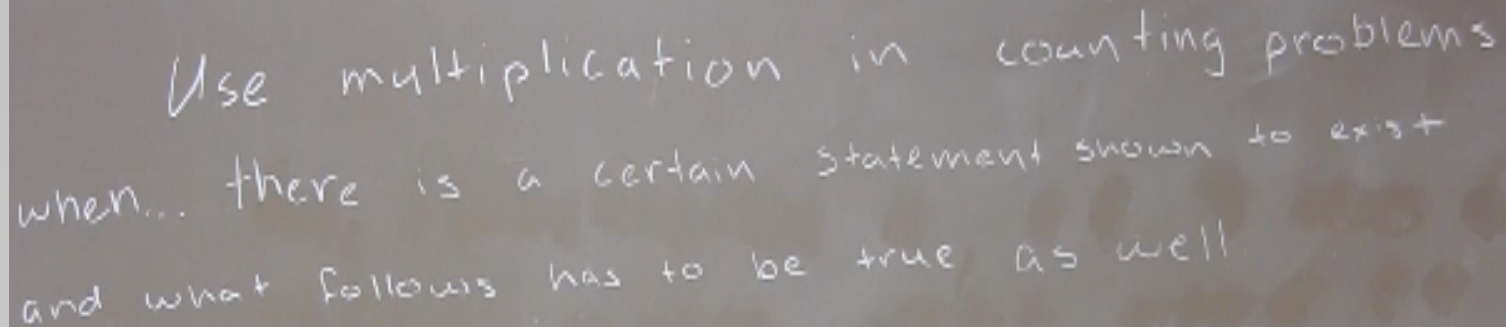 Use multiplication in counting problems
when... there is a certain statement shown to exist
and what follows has to be true as well